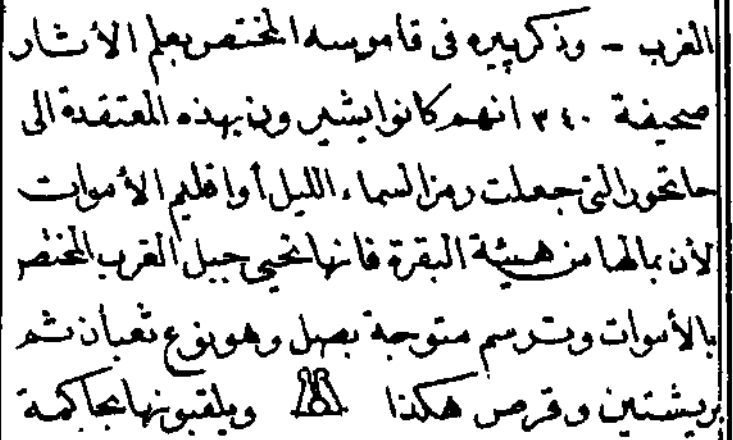 الغرب - وذكر بيره فى قاموسه المختصر بعلم الأثار
صحيفة ٣٤٠ انهم كانوا يشيرون بهذه المعتقدة الى
حاتحور التى جعلت رمز السماء الليل أو اقليم الأموات
لأن بمالها من هيئة البقرة فانها تحيى جبل الغرب المختص
بالأموات وترسم متوجة بصل وهو نوع ثعبان ثم
بريشتين وقرص هكذا ويلقبونها بحاكمة